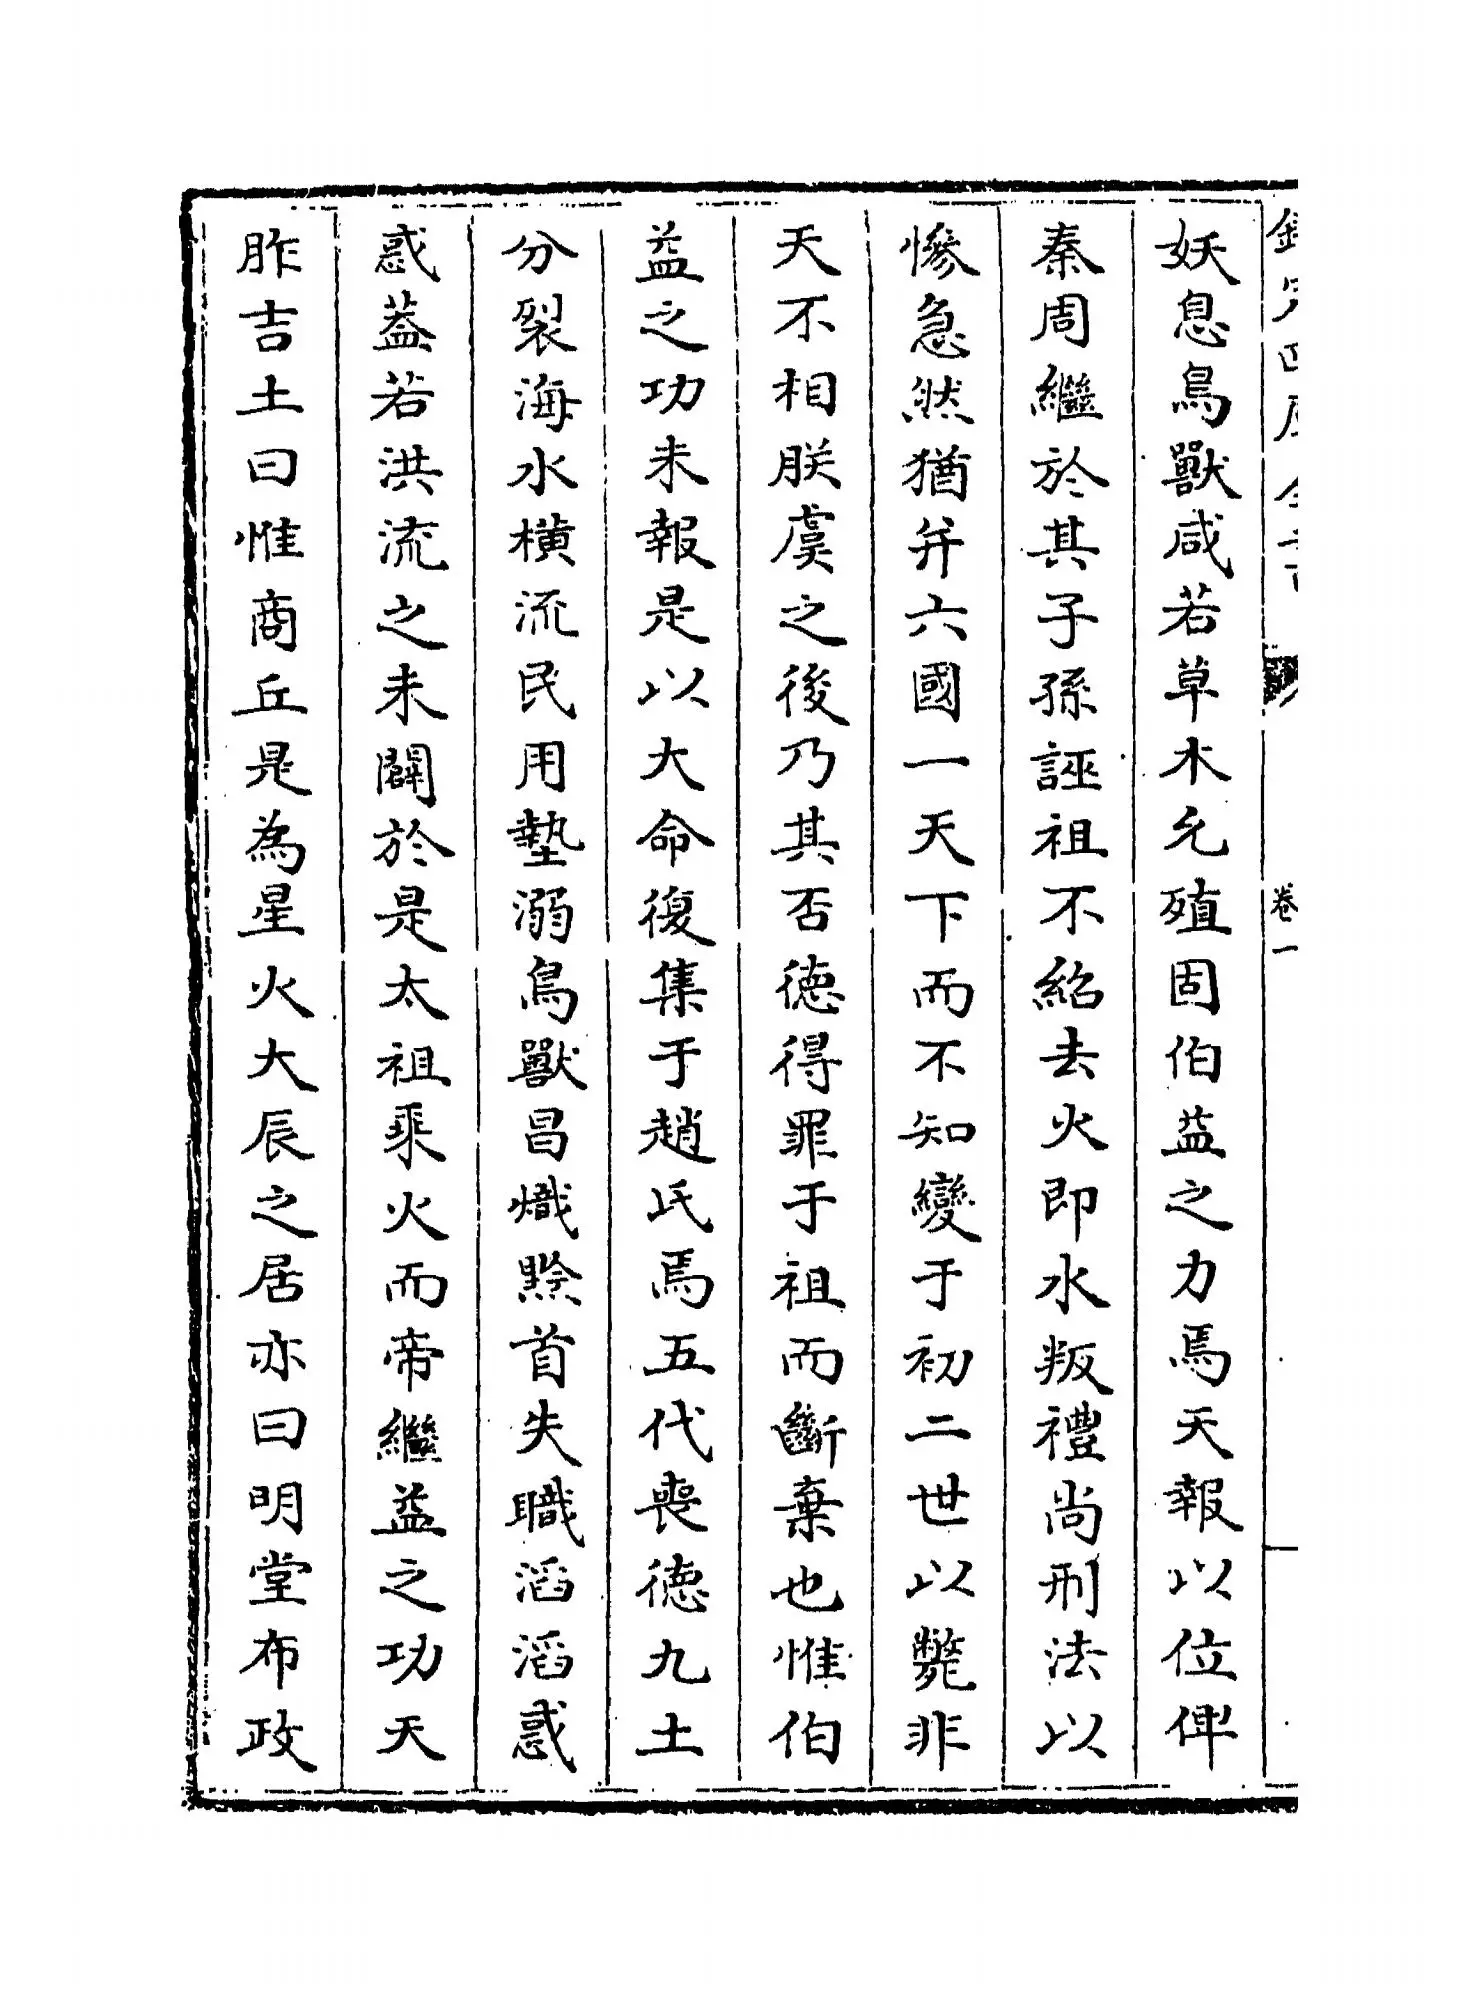 欽定四庫全書
卷一
妖息鳥獸咸若草木允殖固伯益之力焉天報以位俾
秦周繼於其子孫誣祖不紹去火即水叛禮尚刑法以
慘急然猶并六國一天下而不知變于初二世以斃非
天不相朕虞之後乃其否德得罪于祖而斷棄也惟伯
益之功未報是以大命復集于趙氏焉五代喪德九土
分裂海水橫流民用墊溺鳥獸昌熾黔首失職滔滔惑
惑蓋若洪流之未闢於是太祖乘火而帝繼益之功天
胙吉土曰惟商丘是為星火大辰之居亦曰明堂布政